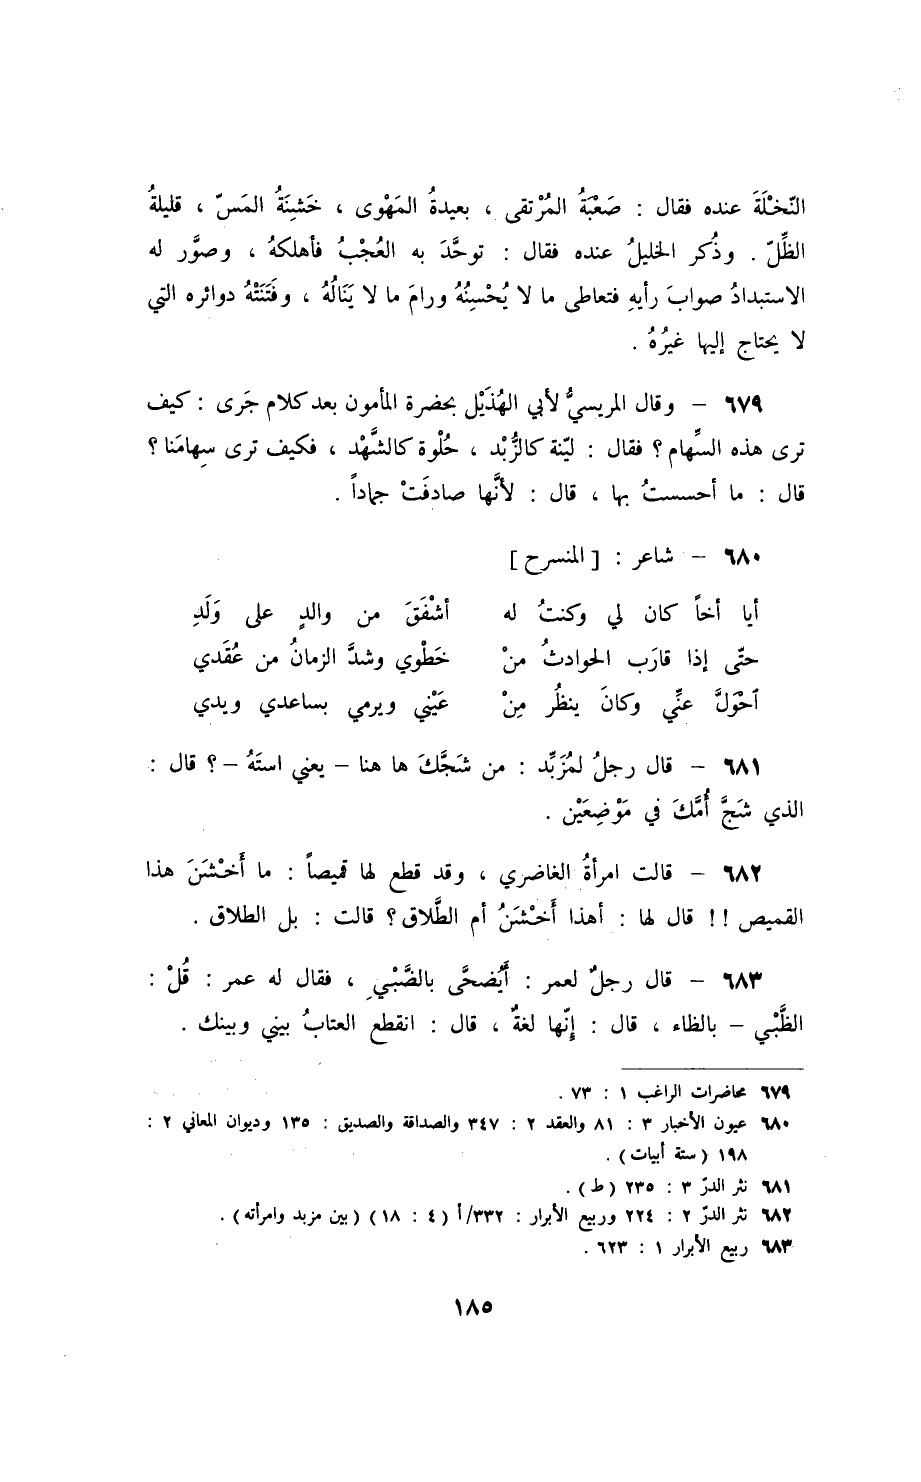 النّخْلَةَ عنده فقال : صَعْبَةُ المُرْتقى ، بعيدةُ المَهْوى ، خَشِنَةُ المَسّ ، قليلةُ
الظِّلّ . وذُكر الخليلُ عنده فقال : توحَّدَ به العُجْبُ فأهلكهُ ، وصوَّر له
الاستبدادُ صوابَ رأيهِ فتعاطى ما لا يُحْسِنُهُ ورامَ ما لا يَنَالُهُ ، وفَتَنَتْهُ دوائره التي
لا يحتاج إليها غيرُهُ .
٦٧٩ – وقال المريسيُّ لأبي الهُذَيْل بحضرة المأمون بعد كلام جَرى : كيف
ترى هذه السِّهام ؟ فقال : ليّنة كالزُّبْد ، حُلْوة كالشَّهْد ، فكيف ترى سِهامَنا ؟
قال : ما أحسستُ بها ، قال : لأنَّها صادفَتْ جماداً .
٦٨٠ – شاعر : [ المنسرح ]
أيا أخاً كان لي وكنتُ له أشْفَقَ من والدٍ على وَلَدِ
حتّى إذا قارَب الحوادثُ منْ خَطْوي وشدَّ الزمانُ من عُقَدي
ٱحْوَلَّ عنِّي وكانَ ينظُر مِنْ عَيْني ويرمي بساعدي ويدي
٦٨١ – قال رجلُ لمُزَبِّد : من شَجَّكَ ها هنا – يعني استَهُ – ؟ قال :
الذي شَجَّ أُمَّكَ في مَوْضِعَيْن .
٦٨٢ – قالت امرأةُ الغاضري ، وقد قطع لها قميصاً : ما أَخْشَنَ هذا
القميص !! قال لها : أهذا أَخْشَنُ أم الطَّلاق ؟ قالت : بل الطلاق .
٦٨٣ – قال رجلٌ لعمر : أَيُضحَّى بالضَّبْيِ ، فقال له عمر : قُلْ :
الظَّبْي – بالظاء ، قال : إنّها لغةٌ ، قال : انقطع العتابُ بيني وبينك .
٦٧٩ محاضرات الراغب ١ : ٧٣ .
٦٨٠ عيون الأخبار ٣ : ٨١ والعقد ٢ : ٣٤٧ والصداقة والصديق : ١٣٥ وديوان المعاني ٢ :
١٩٨ ( ستة أبيات ) .
٦٨١ نثر الدرّ ٣ : ٢٣٥ ( ط ) .
٦٨٢ نثر الدرّ ٢ : ٢٢٤ وربيع الأبرار : ٣٣٢/أ ( ٤ : ١٨ ) ( بين مزبد وامرأته ) .
٦٨٣ ربيع الأبرار ١ : ٦٢٣ .
١٨٥